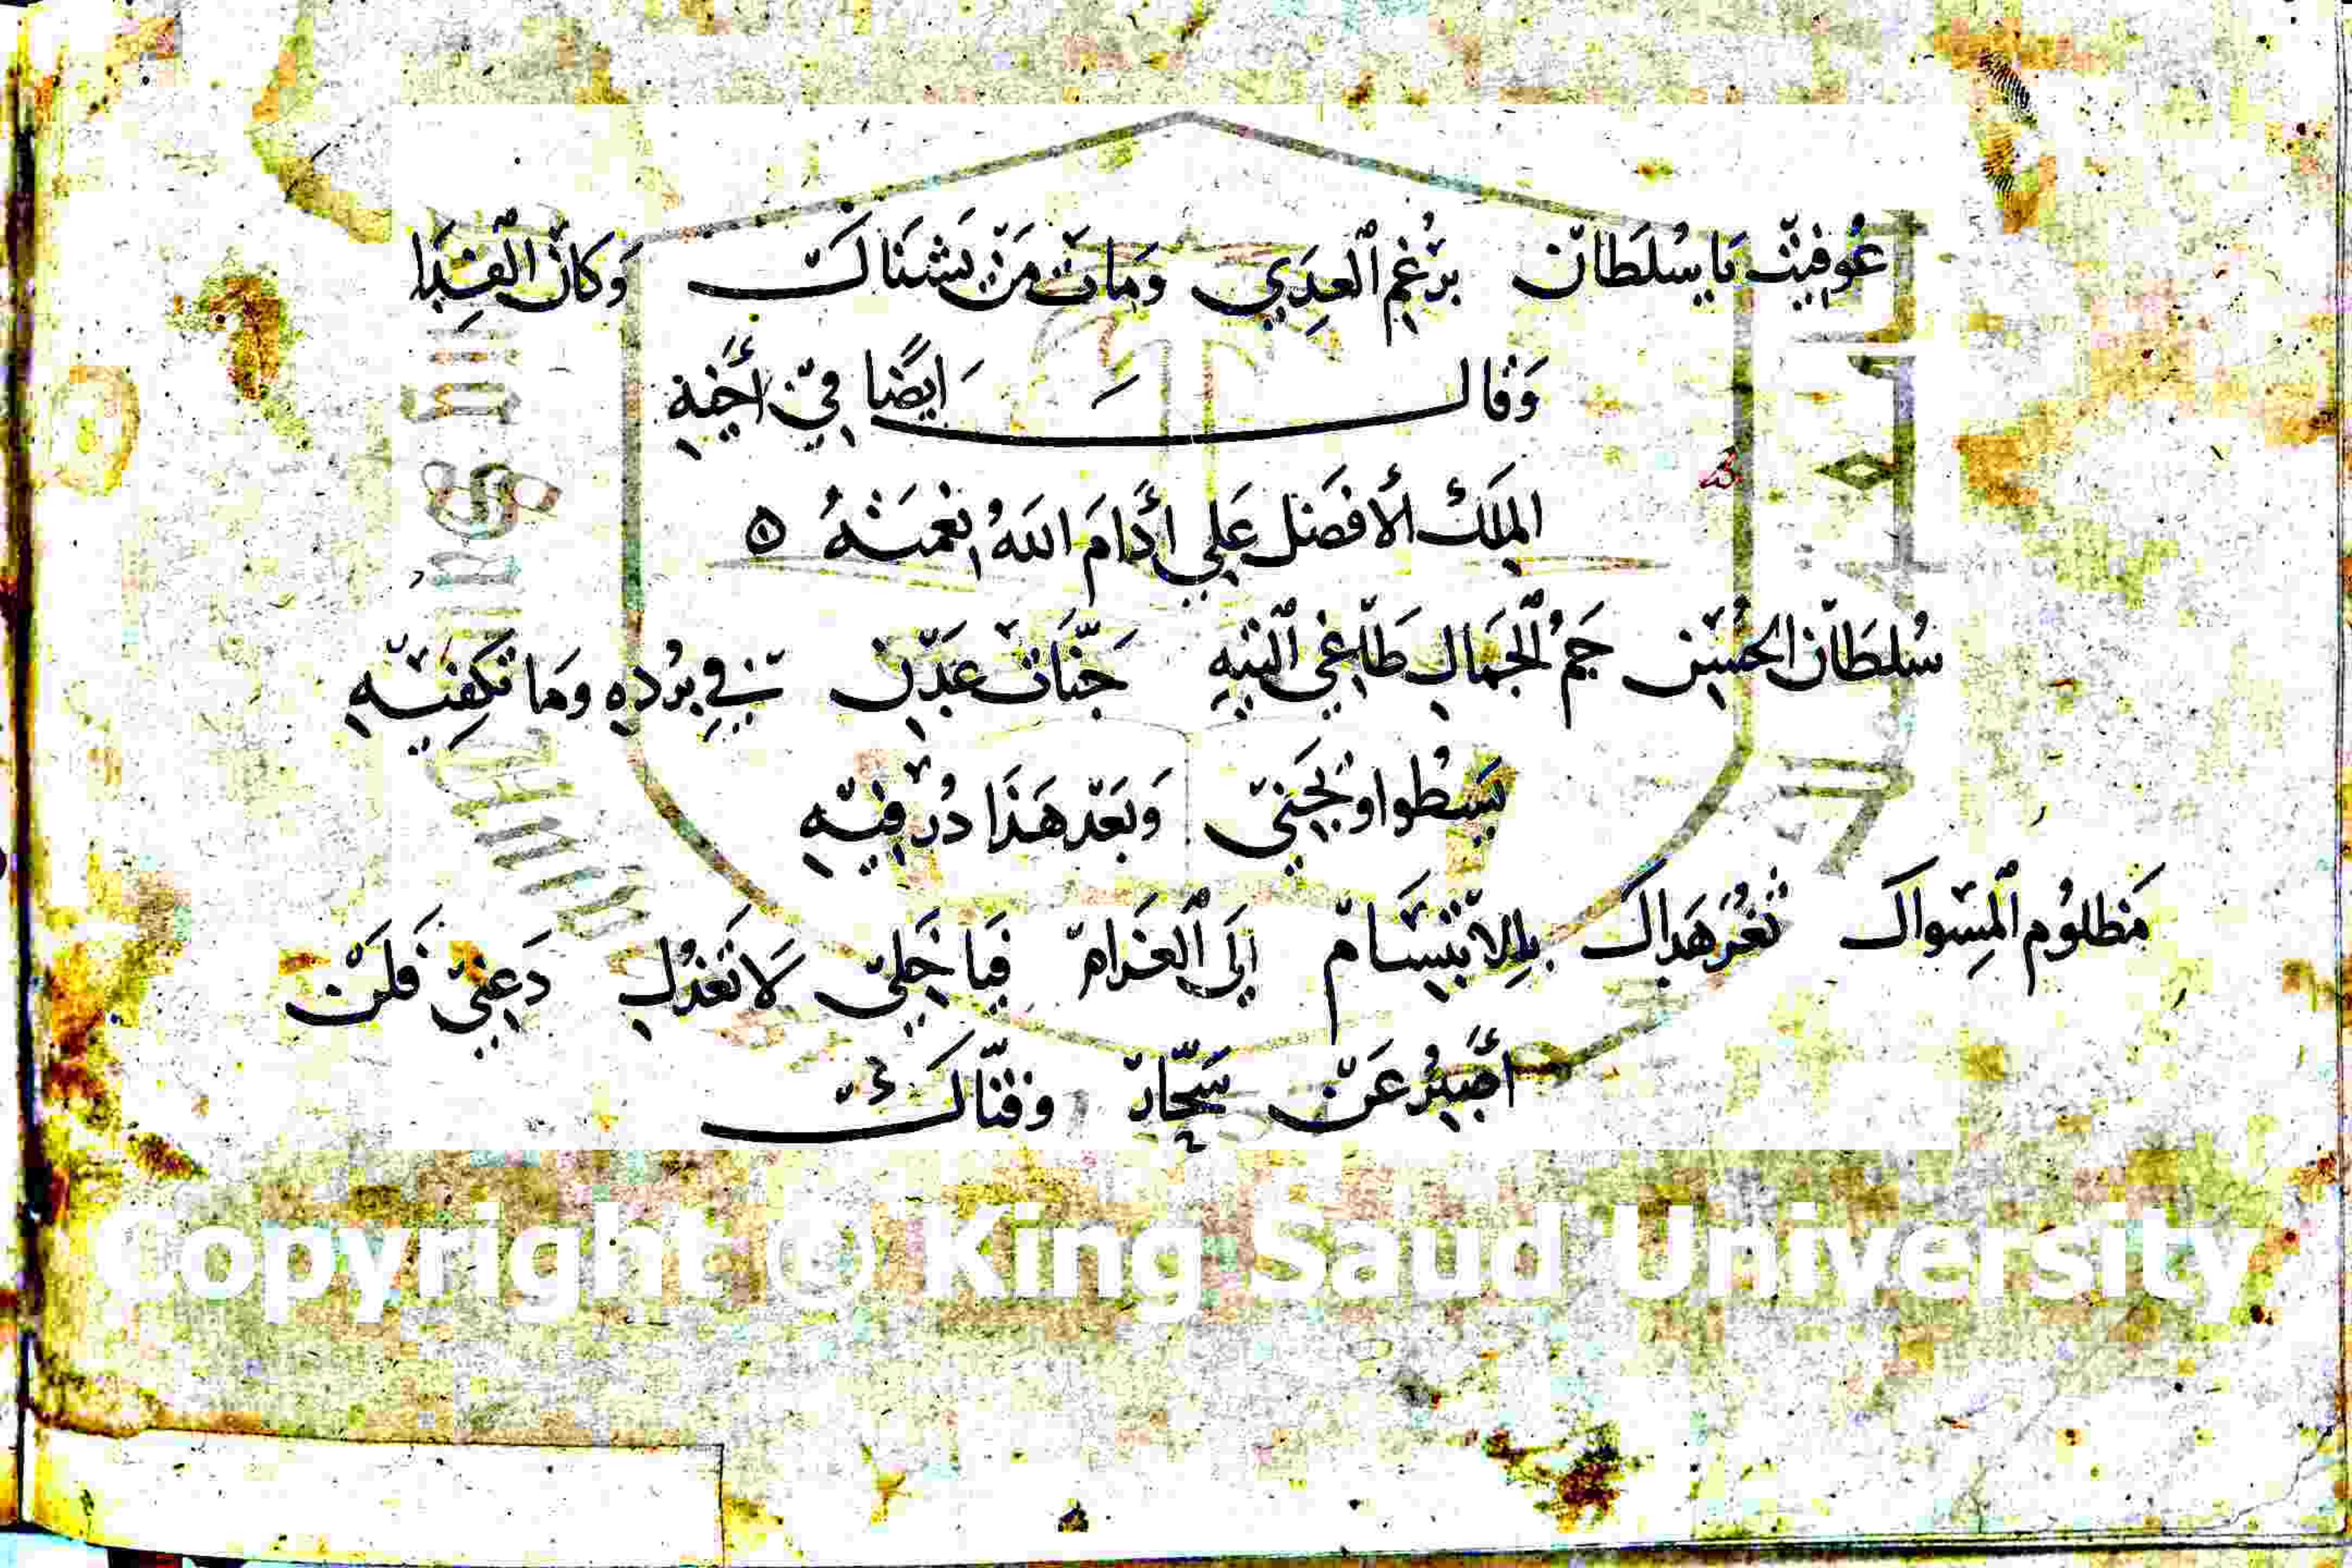 عُوفِيْتْ يَا سُلْطَانْ بِرْغِمِ الْعِدَي وَمَاتْ مَنْ يَشْنَاكْ وَكَانْ الْفِدَا
وَقَالَ اَيضًا فِيْ أَخِيْهِ
المَلِكْ الأَفضَل عَلِي أَدَامَ اللهُ نِعْمَتَهُ ه
سُلطَانْ الحُسْنِ جَمُ الْجَمَالِ طَاغِي التِّيهِ جَنَّاتْ عَدْنٍ فِي بُرْدِهِ وَمَا تَكْفِيْهِ
يَسْطُوا وَيَجْنِيْ وَبَعْدْ هَذَا دُرْ فِيْهِ
مَظلوُم الْمِسْواكْ ثَغْرُ هَداكْ بِالاِبْتِسَامْ اِلَى الْغَرَامْ فَيَا خَلِيْ لَا تَعْذُلِ دَعْنِيْ فَلَنْ
أَصْبِرُ عَنْ سَحَّارْ وَفَتَّاكْ
Copyright © King Saud University